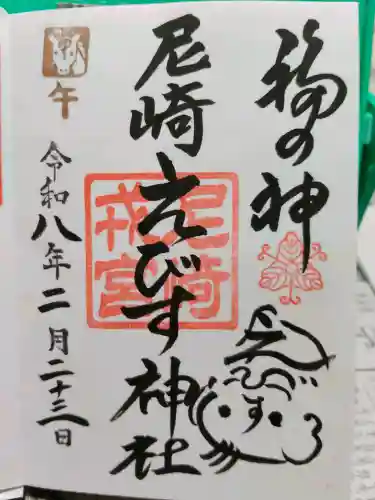 福の神
尼崎えびす神社
尼崎戎宮
えびす
午
令和八年二月二十三日